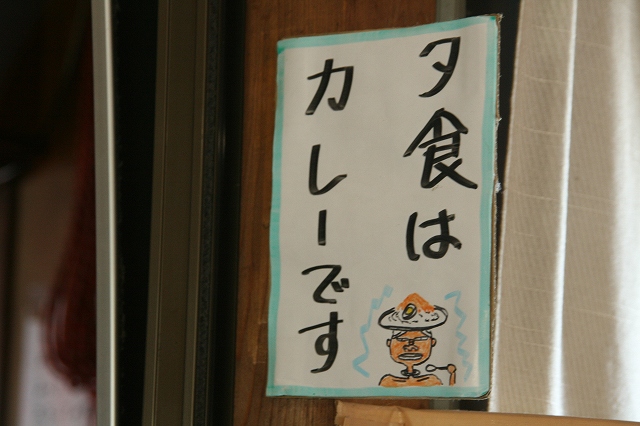 夕食は
カレーです